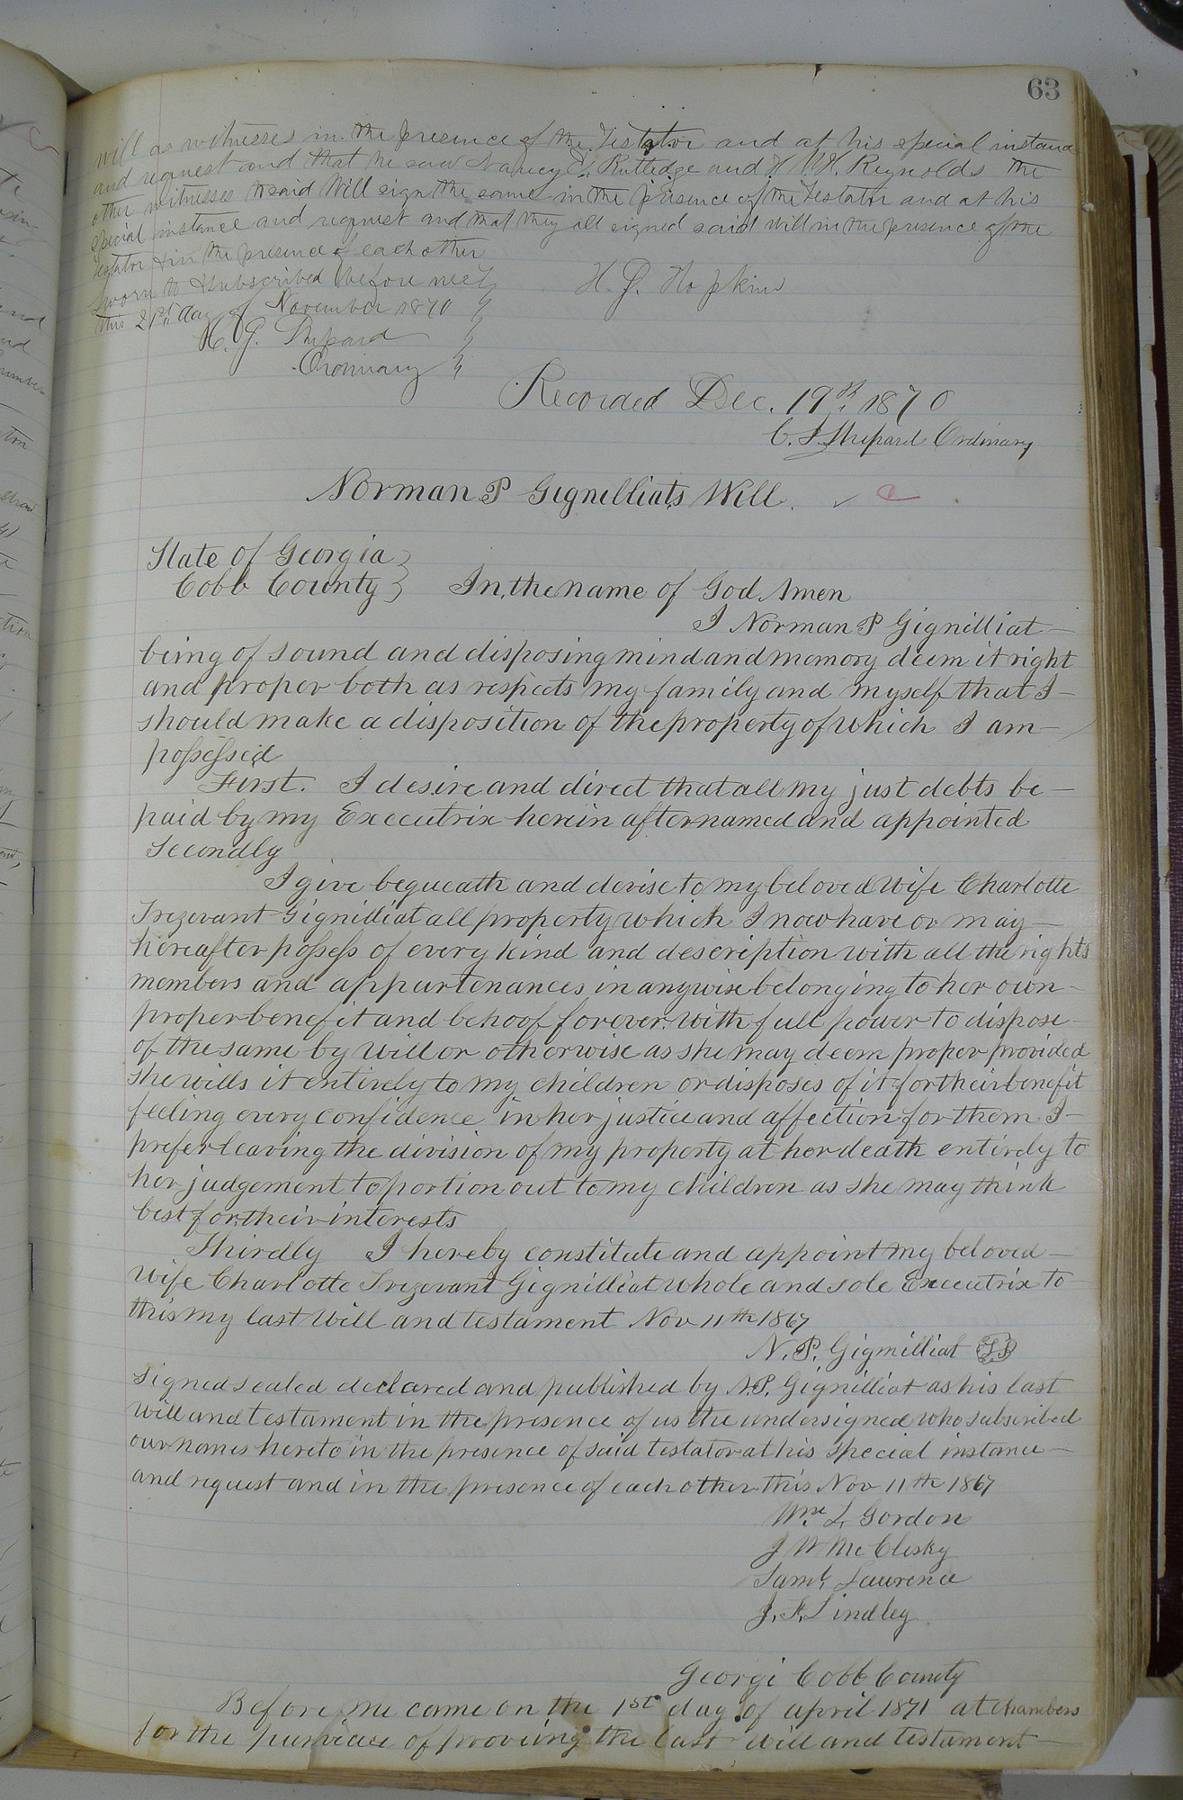 63
will as witnesses in the presence of the Testator and at his special instance
and request and that he saw Nancy E. Rutledge and W. H. Reynolds the
other witnesses to said Will sign the same in the presence of the Testator and at his
special instance and request and that they all signed said will in the presence of the
testator & in the presence of each other
Sworn to & subscribed before me
this 21st day of November 1870
H. J. Hopkins
Shepard
Ordinary
Recorded Dec. 19th 1870
C. J. Shepard Ordinary
Norman P Gignilliats Will.
State of Georgia
Cobb County In the name of God Amen
I Norman P Gignilliat
being of sound and disposing mind and memory deem it right
and proper both as respects my family and myself that I
should make a disposition of the property of which I am
possessed
First. I desire and direct that all my just debts be
paid by my Executrix herein after named and appointed
Secondly
I give bequeath and devise to my beloved Wife Charlotte
Trezevant Gignilliat all property which I now have or may
hereafter possess of every kind and description with all the rights
members and appurtenances in anywise belonging to her own
proper benefit and behoof forever. With full power to dispose
of the same by Will or otherwise as she may deem proper provided
she wills it entirely to my children or disposes of it for their benefit
feeling every confidence in her justice and affection for them I
prefer leaving the division of my property at her death entirely to
her judgement to portion out to my children as she may think
best for their interests
Thirdly I hereby constitute and appoint my beloved
Wife Charlotte Trezevant Gignilliat whole and sole Executrix to
this my last Will and testament Nov 11th 1867
N. P. Gignilliat LS
Signed sealed declared and published by N. P. Gignilliat as his last
Will and testament in the presence of us the undersigned who subscribed
our names hereto in the presence of said testator at his special instance
and request and in the presence of each other this Nov 11th 1867
Wm L Gordon
J W McClesky
Saml Laurence
J. F. Lindley
Georgi Cobb County
Before me came on the 1st day of april 1871 at chambers
for the of proveing the last will and testament